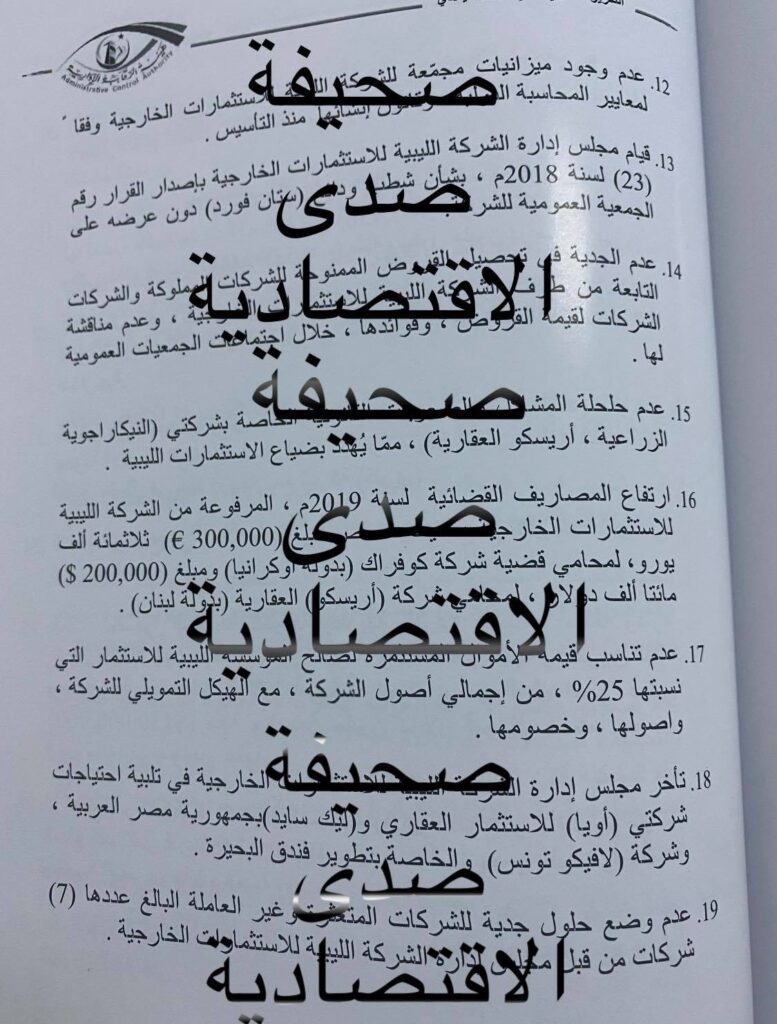 هيئة الرقابة الإدارية
Administrative Control Authority
12. عدم وجود ميزانيات مجمّعة للشركة الليبية للاستثمارات الخارجية وفقا
لمعايير المحاسبة إنشائها منذ التأسيس .
13. قيام مجلس إدارة الشركة الليبية للاستثمارات الخارجية بإصدار القرار رقم
(23) لسنة 2018م ، بشأن شطب (ستان فورد) دون عرضه على
الجمعية العمومية للشركة
14. عدم الجدية في تحصيل القروض الممنوحة للشركات المملوكة والشركات
التابعة من طرف الشركة الليبية للاستثمارات الخارجية ، وعدم مناقشة
الشركات لقيمة القروض ، وفوائدها ، خلال اجتماعات الجمعيات العمومية
لها .
15. عدم حلحلة المشاكل الخاصة بشركتي (النيكاراجوية
الزراعية ، أريسكو العقارية) ، ممّا يُهدّد بضياع الاستثمارات الليبية .
16. ارتفاع المصاريف القضائية لسنة 2019م ، المرفوعة من الشركة الليبية
للاستثمارات الخارجية مبلغ (300,000 €) ثلاثمائة ألف
يورو، لمحامي قضية شركة كوفراك (بدولة أوكرانيا) ومبلغ (200,000 $)
مائتا ألف دولار ، لمحامي شركة (أريسكو) العقارية (بدولة لبنان) .
17. عدم تناسب قيمة الأموال المستثمرة لصالح المؤسسة الليبية للاستثمار التي
نسبتها 25% ، من إجمالي أصول الشركة ، مع الهيكل التمويلي للشركة ،
واصولها ، وخصومها .
18. تأخر مجلس إدارة الشركة الليبية للاستثمارات الخارجية في تلبية احتياجات
شركتي (أويا) للاستثمار العقاري و(ليك سايد)بجمهورية مصر العربية ،
وشركة (لافيكو تونس) والخاصة بتطوير فندق البحيرة .
19. عدم وضع حلول جدية للشركات المتعثرة وغير العاملة البالغ عددها (7)
شركات من قبل مجلس إدارة الشركة الليبية للاستثمارات الخارجية .
صحيفة
صدى
الاقتصادية
صحيفة
صدى
الاقتصادية
صحيفة
صدى
الاقتصادية